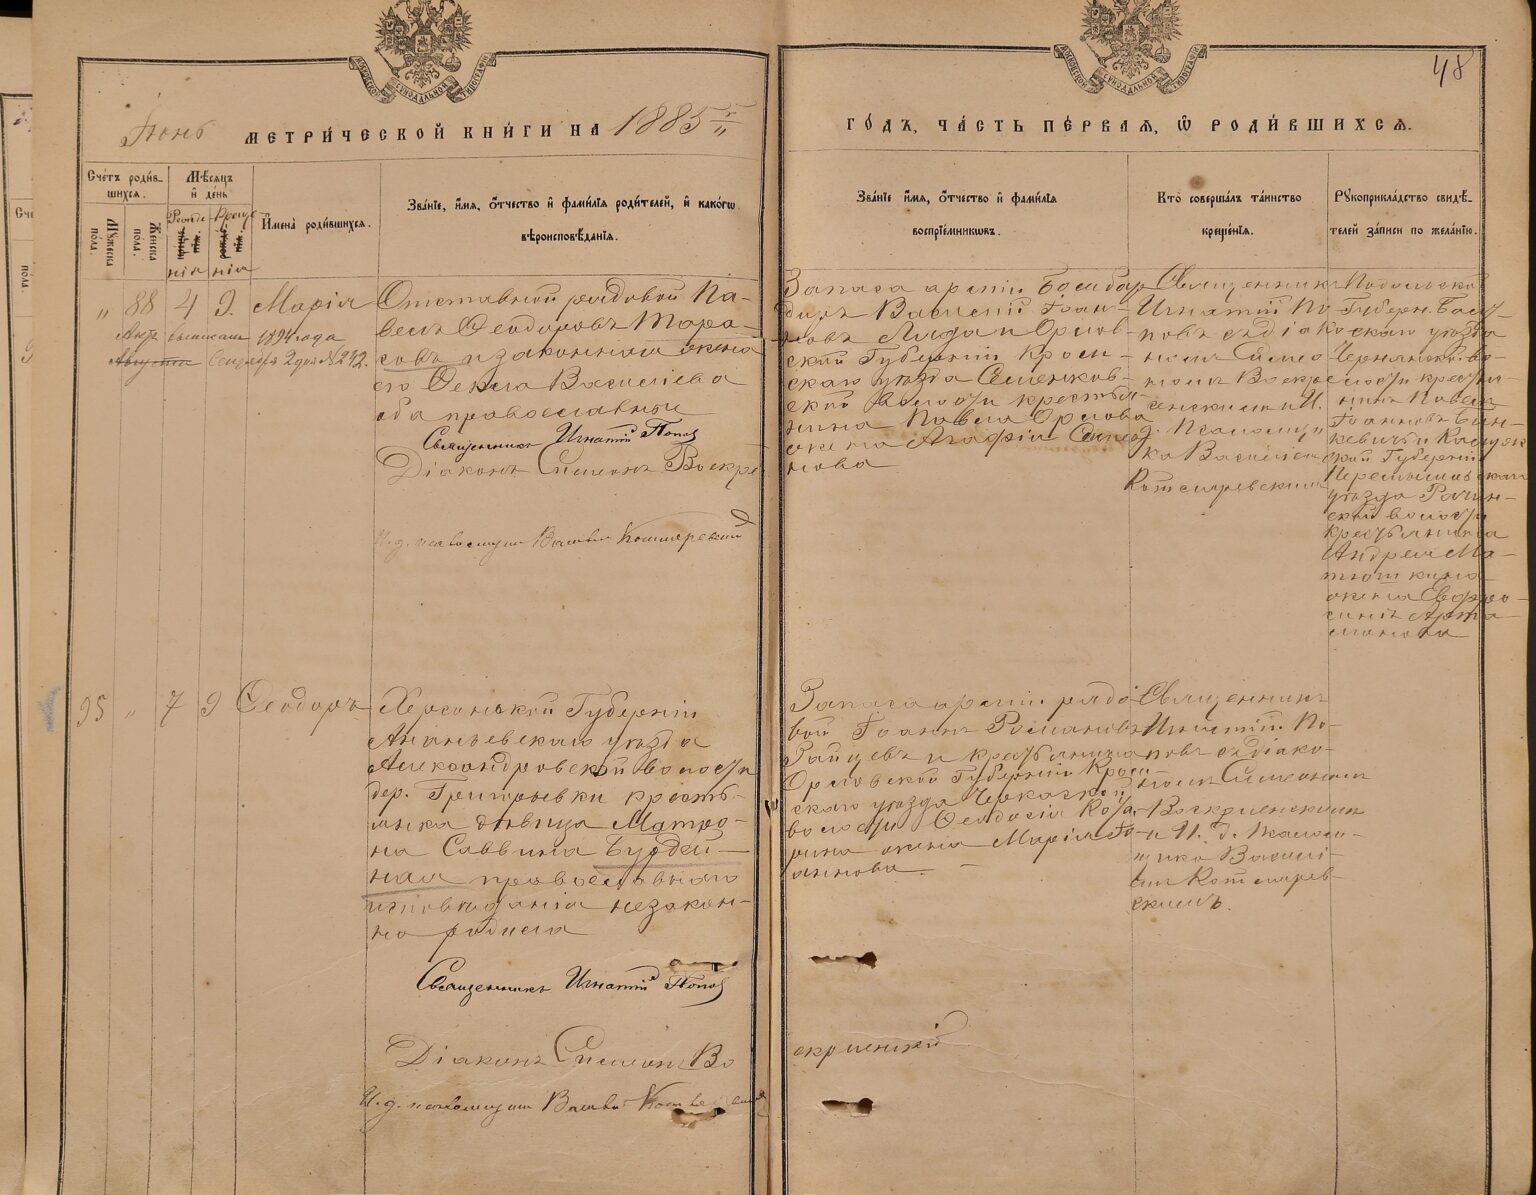 48
Іюнь МЕТРИ́ЧЕСКОЙ КНИ́ГИ НА 1885 г.
ГО́ДЪ, ЧА́СТЬ ПЕ́РВАЯ, Ѽ РОДИ́ВШИХСѦ.
Сче́тъ роди́в-
шихся.
Мѣ́сяцъ
и҆ де́нь
Мꙋжеска
пола.
Женска
пола.
Рожде
нія
Креще
нія
И҆мена̀ роди́вшихся.
Зва́нїе, и҆́мя, ѻ҆́тчество и҆ фами́лїя роди́телей, и҆ како́гѡ
вѣроисповѣ́данїя.
Зва́нїе и҆́мя, ѻ҆́тчество и҆ фами́лїя
воспрїе́мникѡвъ.
Кто̀ соверша́лъ та́инство
креще́нїя.
Рꙋкоприкла́дство свидѣ́-
телей за́писи по жела́нїю.
„ 88 4 9. Марія
выписан 1894 года
Августа Сентября 2 дня № 242.
Отставной рядовой Па-
велъ Ѳеодоровъ Тара-
совъ и законная жена
его Ѳекла Васильева
оба православные
Священникъ Игнатій Попов
Діаконъ Симеонъ Воскре
И. д. псаломщик Василій Котляревский
Запаса арміи Бомбар
диръ Василій Іоан-
новъ Лида и Орлов-
ской Губерніи Кром-
скаго уѣзда Семенков-
ской волости крестья-
нина Павла Орлова
жена Агафія Семео-
нова
Священникъ
Игнатій По
повъ съ діако
номъ Симео
номъ Воскре
сенскимъ и И.
д. Псаломщи
ка Василіем
Котляревскимъ
Подольской
Губерн. Балт-
скаго уѣзда
волости крестья-
нинъ Павелъ
Іоанновъ Бан-
кевичъ и Калуж
ской Губерніи
Перемышльскаго
уѣзда
ской волости
крестьянина
Андрея Ма-
тюшкина
жена Евфро-
синія Арта-
монова
95 „ 7 9 Ѳеодоръ
Херсонской Губерніи
Ананьевскаго уѣзда
Александровской волости
дер. Григорьевки кресть-
янка дѣвица Матро-
на Саввина Бурдей-
ная православнаго
исповѣданія незакон-
но родила
Священникъ Игнатій Попов
Діаконъ Симеонъ Во
скресенскій
И. д. псаломщик Василій
Запаса арміи рядо
вой Іоаннъ Романовъ
Зайцевъ и крестьянина
Орловской Губерніи Кром-
скаго уѣзда
волости Ѳеодосія
рина жена Марія Іо-
аннова.
Священникъ
Игнатій По-
повъ съ діако-
номъ Симеономъ
Воскресенскимъ
и И. д. Псалом-
щика Василі-
емъ Котлярев-
скимъ.